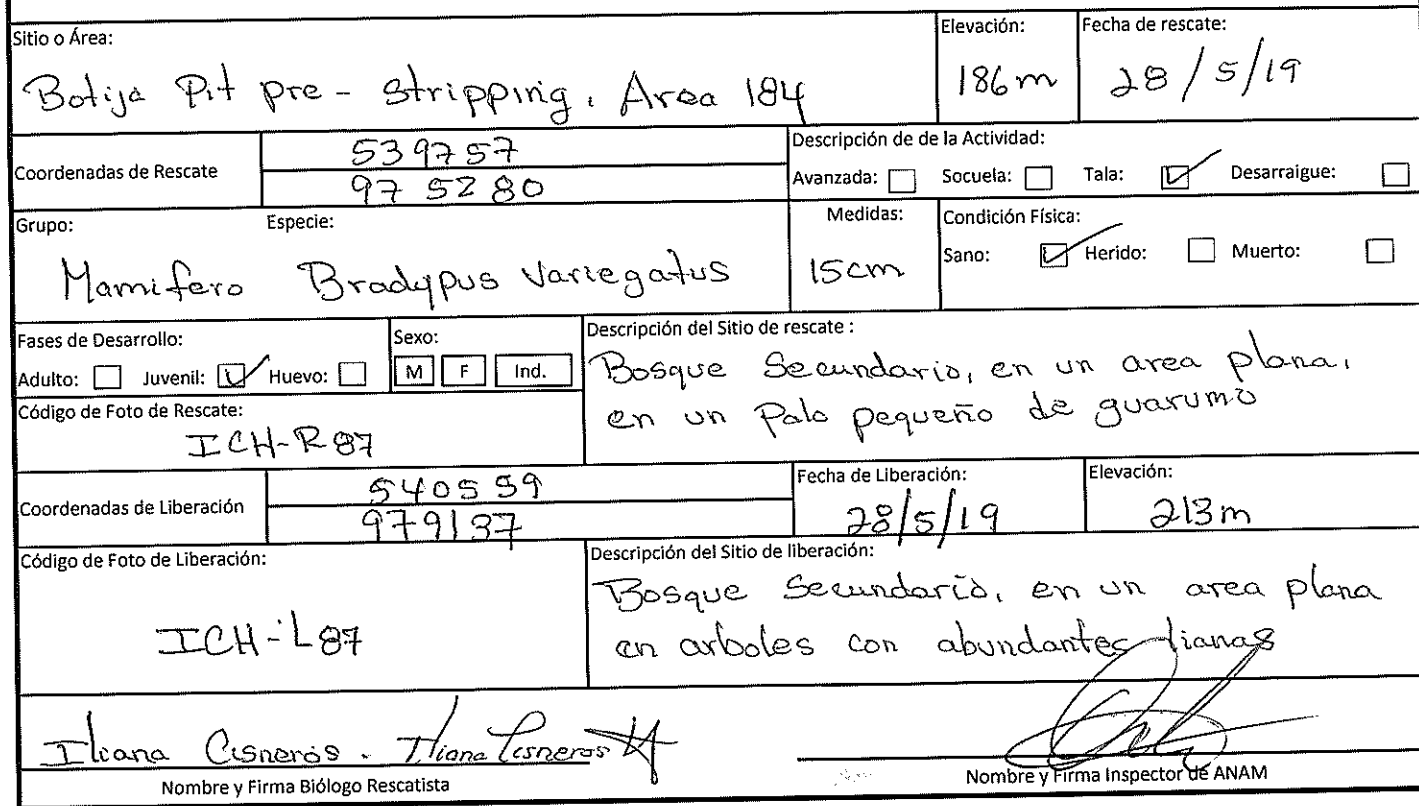 Sitio o Área:
Botija Pit pre-stripping. Area 184
Elevación:
186m
Fecha de rescate:
28/5/19
Coordenadas de Rescate
539757
975280
Descripción de de la Actividad:
Avanzada: ☐ Socuela: ☐ Tala: ☑ Desarraigue: ☐
Grupo: Especie:
Mamifero Bradypus Variegatus
Medidas:
15cm
Condición Física:
Sano: ☑ Herido: ☐ Muerto: ☐
Fases de Desarrollo:
Adulto: ☐ Juvenil: ☑ Huevo: ☐
Sexo:
M F Ind.
Código de Foto de Rescate:
ICH-R87
Descripción del Sitio de rescate :
Bosque Secundario, en un area plana,
en un Palo pequeño de guarumo
Coordenadas de Liberación
540559
979137
Fecha de Liberación:
28/5/19
Elevación:
213m
Código de Foto de Liberación:
ICH-L87
Descripción del Sitio de liberación:
Bosque Secundario, en un area plana
en arboles con abundantes lianas
Iliana Cisneros. Iliana Cisneros
Nombre y Firma Biólogo Rescatista
Nombre y Firma Inspector de ANAM